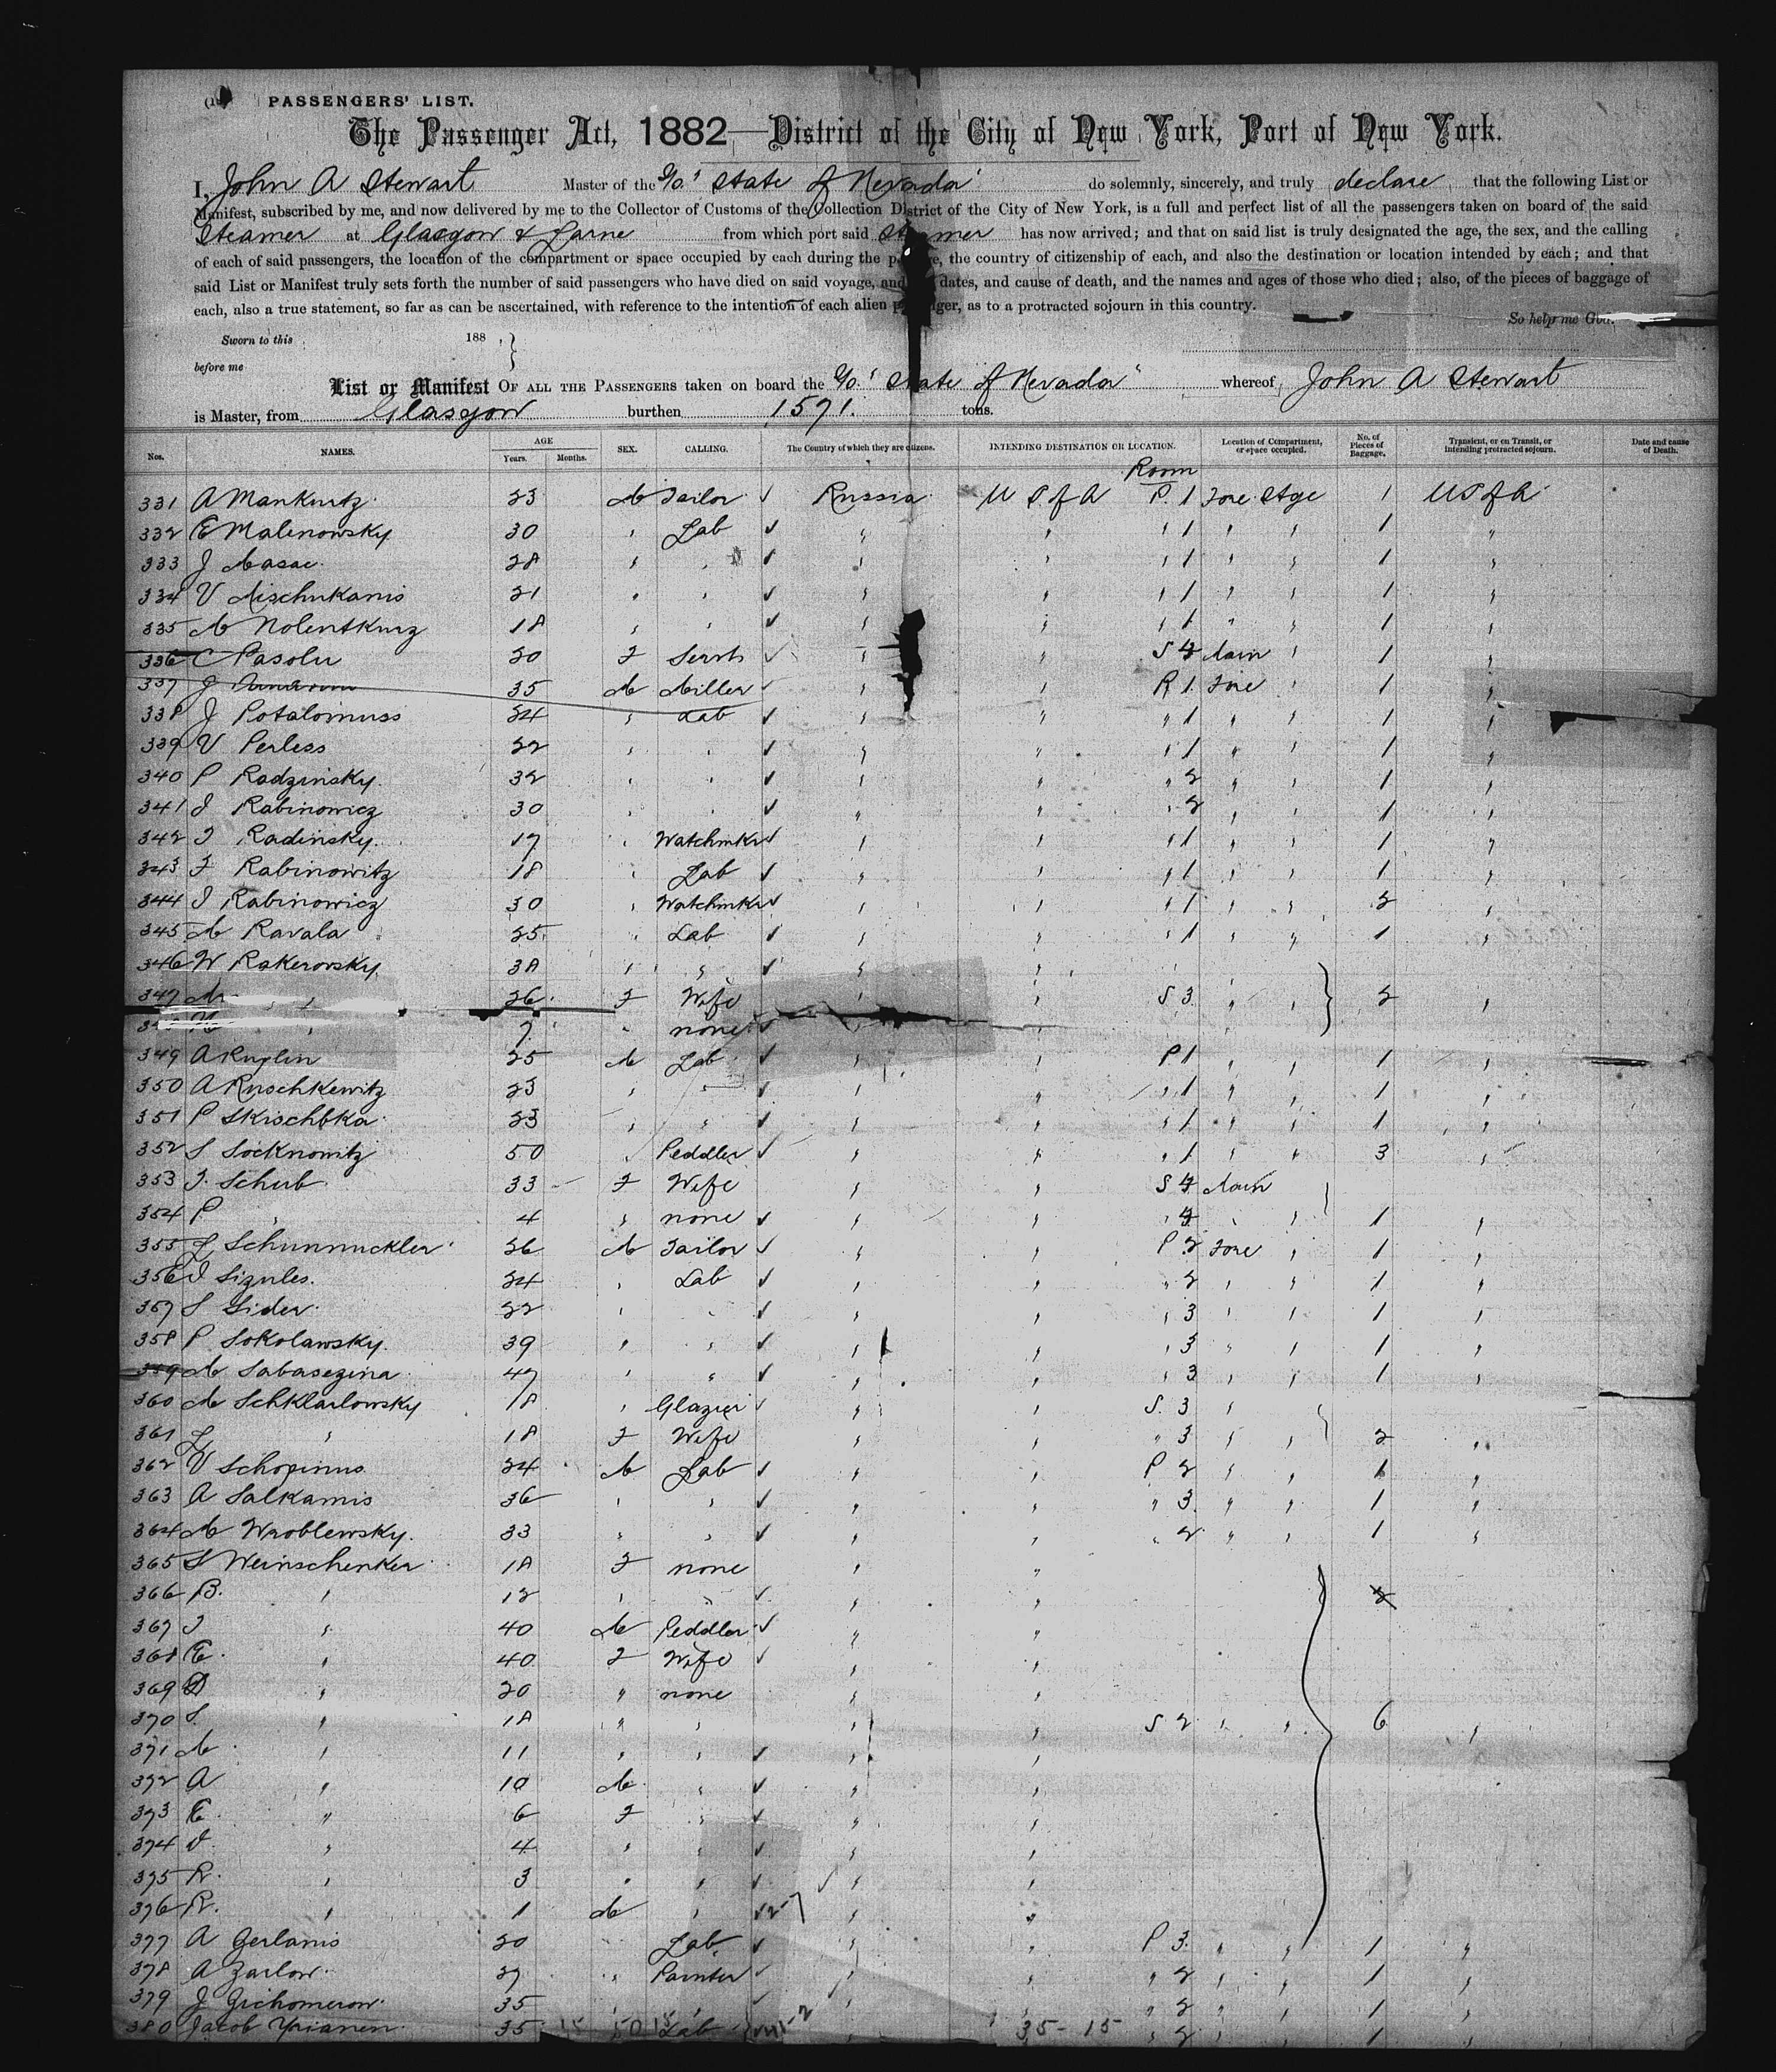 PASSENGERS' LIST.
The Passenger Act, 1882—District of the City of New York, Port of New York.
I, John A Stewart Master of the S/S. "State of Nevada" do solemnly, sincerely, and truly declare that the following List or
Manifest, subscribed by me, and now delivered by me to the Collector of Customs of the Collection District of the City of New York, is a full and perfect list of all the passengers taken on board of the said
Steamer at Glasgow & Larne from which port said Steamer has now arrived; and that on said list is truly designated the age, the sex, and the calling
of each of said passengers, the location of the compartment or space occupied by each during the passage, the country of citizenship of each, and also the destination or location intended by each; and that
said List or Manifest truly sets forth the number of said passengers who have died on said voyage, and dates, and cause of death, and the names and ages of those who died; also, of the pieces of baggage of
each, also a true statement, so far as can be ascertained, with reference to the intention of each alien passenger, as to a protracted sojourn in this country.
So help me God.
Sworn to this 188 ,
before me
List or Manifest OF ALL THE PASSENGERS taken on board the S/S. "State of Nevada" whereof John A Stewart
is Master, from Glasgow burthen 1571. tons.
Nos. NAMES. AGE Years. Months. SEX. CALLING. The Country of which they are citizens. INTENDING DESTINATION OR LOCATION. Location of Compartment, or space occupied. No. of Pieces of Baggage. Transient, or on Transit, or intending protracted sojourn. Date and cause of Death.
Room
331 A Mankurtz 23 M Tailor ✓ Russia U S of A P. 1 Fore Stge 1 U S of A
332 E Malenowsky 30 " Lab ✓ " " " 1 " " 1 "
333 J Masae 28 " " ✓ " " " 1 " " 1 "
334 V Mischukanis 21 " " ✓ " " " 1 " " 1 "
335 M Nolentkurz 18 " " ✓ " " " 1 " " 1 "
336 C Pasolu 20 F Servt ✓ " " S 4 Main " 1 "
337 J 35 M Miller ✓ " " P. 1 Fore " 1 "
338 J Potalomuss 24 " Lab ✓ " " " 1 " " 1 "
339 V Perless 22 " " ✓ " " " 1 " " 1 "
340 P Radzinsky. 32 " " ✓ " " " 2 " " 1 "
341 I Rabinowicz 30 " " ✓ " " " 2 " " 1 "
342 I Radinsky. 17 " Watchmkr ✓ " " " 1 " " 1 "
343 F Rabinowitz 18 " Lab ✓ " " " 1 " " 1 "
344 I Rabinowicz 30 " Watchmkr ✓ " " " 1 " " 2 "
345 M Ravala 25 " Lab ✓ " " " 1 " " 1 "
346 W Rakerowsky 38 " " ✓ " "
347 M " 26 F Wife " " S 3 " " 2 "
" 7 " none ✓
349 A Ruplin 25 M Lab ✓ " " P 1 " " 1 "
350 A Ruschkewitz 23 " " ✓ " " " 1 " " 1 "
351 P Skischbka 23 " " ✓ " " " 1 " " 1 "
352 S Socknowitz 50 " Peddler ✓ " " " 1 " " 3 "
353 I. Schub 33 F Wife " " S 4 Main
354 P. " 4 " none ✓ " " " 4 " " 1 "
355 L Schunmuckler 26 M Tailor ✓ " " P 2 Fore " 1 "
356 I Sizules. 24 " Lab ✓ " " " 2 " " 1 "
357 S Sider 22 " " ✓ " " " 3 " " 1 "
358 P Sokolawsky. 39 " " ✓ " " " 3 " " 1 "
359 M Sabasezina 47 " " ✓ " " " 3 " " 1 "
360 M Schklarlowsky 18 " Glazier ✓ " " S. 3 "
361 L " 18 F Wife " " " 3 " " 2 "
362 V Schopinus 24 M Lab ✓ " " P 2 " " 1 "
363 A Salkamis 36 " " ✓ " " " 3 " " 1 "
364 M Wroblewsky. 33 " " ✓ " " " 2 " " 1 "
365 S Weinschenker 18 F none " "
366 B. " 12 " " ✓ " " 2
367 I " 40 M Peddler ✓ " "
368 E. " 40 F Wife ✓ " "
369 D " 20 " none " "
370 S. " 18 " " " " S 2 " " 6 "
371 M " 11 " " ✓ " "
372 A " 10 M " ✓ " "
373 E. " 6 F " ✓ " "
374 D. " 4 " " ✓ " "
375 R. " 3 " " ✓ " "
376 R. " 1 M " ✓ " "
377 A Zerlanis 20 Lab ✓ " " P 3. " " 1 "
378 A Zarlow 27 " Painter ✓ " " " 2 " " 1 "
379 J Zichomerow 35 " " ✓ " " " 2 " " 1 "
380 Jacob 35 Lab 35-15 " 2 " " 1 "